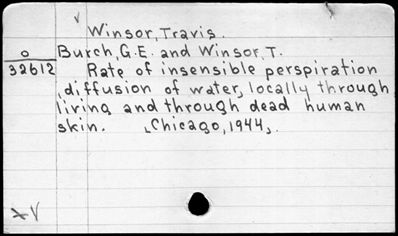 √ Winsor, Travis.
o Burch, G.E. and Winsor, T.
32612 Rate of insensible perspiration
(diffusion of water) locally through
living and through dead human
skin. [Chicago, 1944].